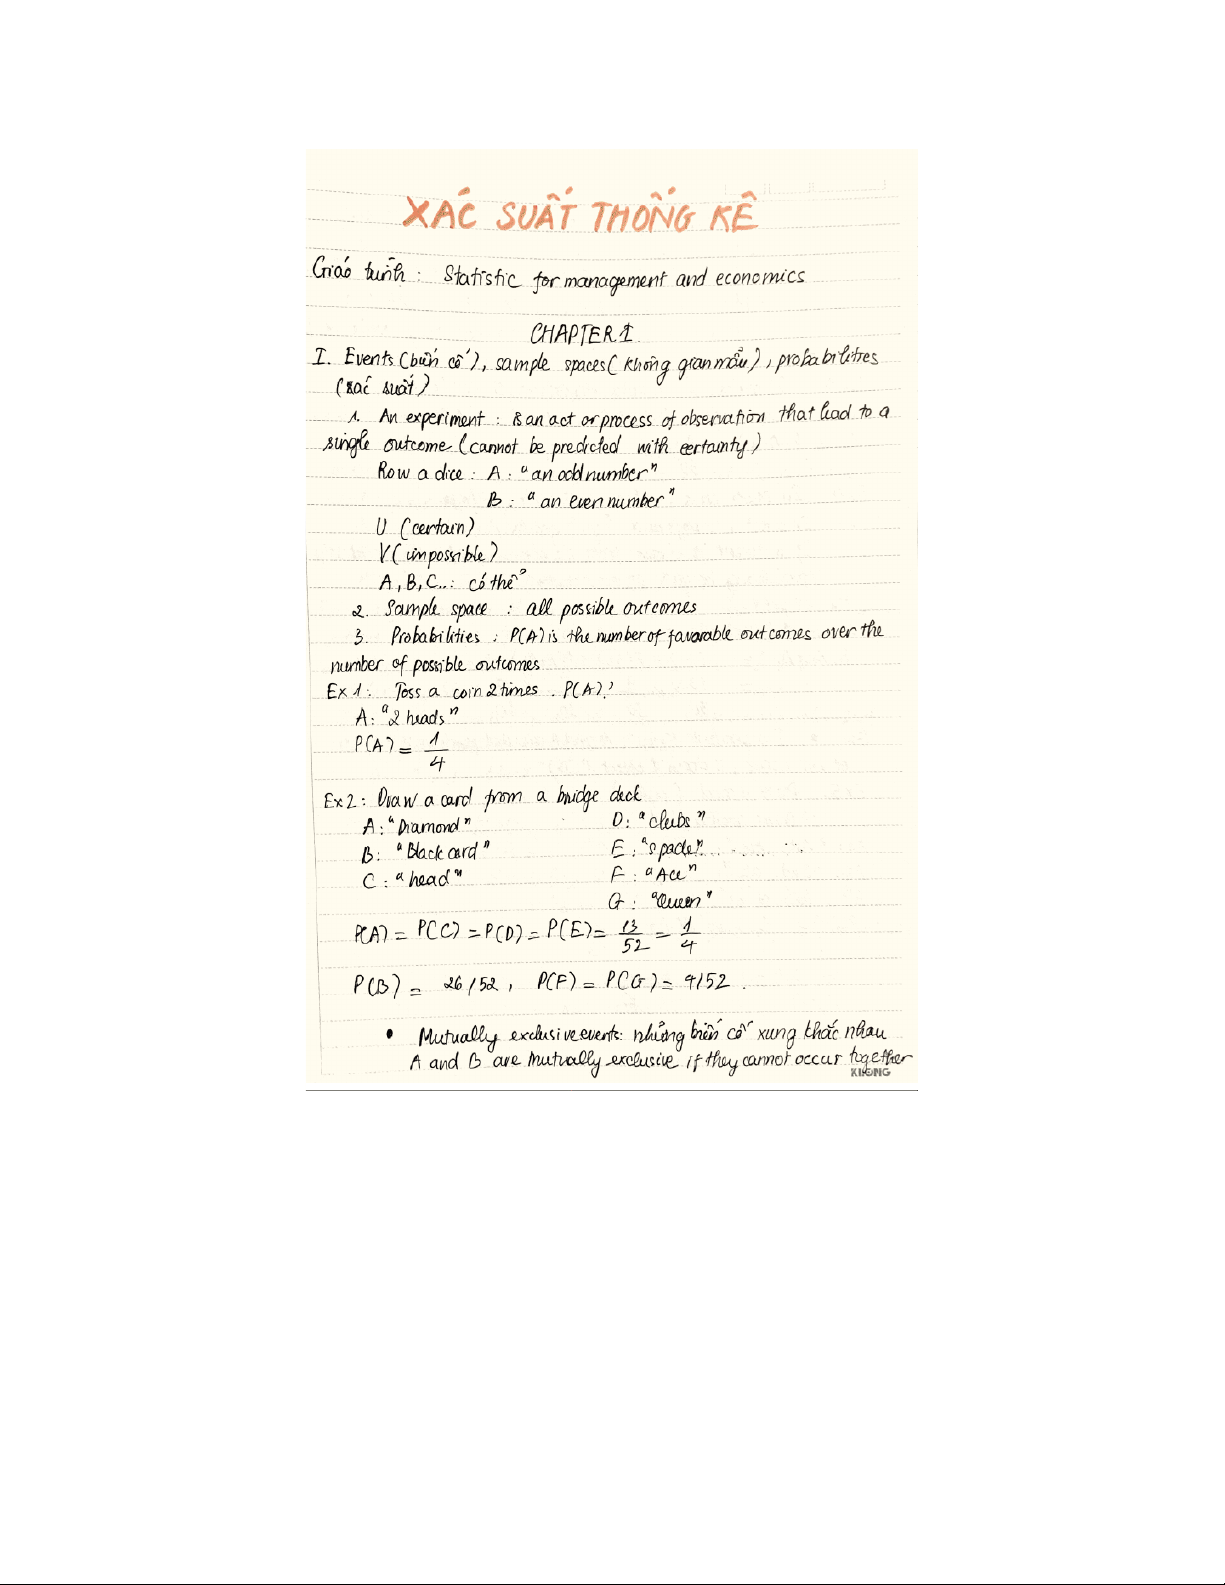 XÁC SUẤT THỐNG KÊ
Giáo trình : Statistic for management and economics
CHAPTER I
I. Events (biến cố), sample spaces ( không gian mẫu) , probabilities
(xác suất)
1. An experiment : is an act or process of observation that lead to a
single outcome (cannot be predicted with certainty)
Row a dice : A : "an odd number"
B : " an even number"
U (certain)
V (impossible)
A, B, C...: có thể
2. Sample space : all possible outcomes
3. Probabilities : P(A) is the number of favorable outcomes over the
number of possible outcomes
Ex 1 : Toss a coin 2 times . P(A)?
A: "2 heads"
P(A) = 1/4
Ex 2 : Draw a card from a bridge deck
A : "Diamond" D: "clubs"
B: "Black card" E : "spade"
C : "head" F : "Ace"
G : "Queen"
P(A) = P(C) = P(D) = P(E) = 13/52 = 1/4
P(B) = 26/52 , P(F) = P(G) = 4/52 .
• Mutually exclusive events: những biến cố xung khắc nhau
A and B are mutually exclusive if they cannot occur together
KLONG